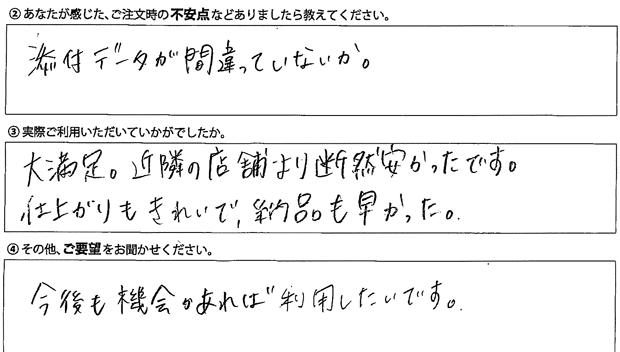 ②あなたが感じた、ご注文時の不安点などありましたら教えてください。
添付データが間違っていないか。
③実際ご利用いただいていかがでしたか。
大満足。近隣の店舗より断然安かったです。
仕上がりもきれいで、納品も早かった。
④その他、ご要望をお聞かせください。
今後も機会があれば利用したいです。